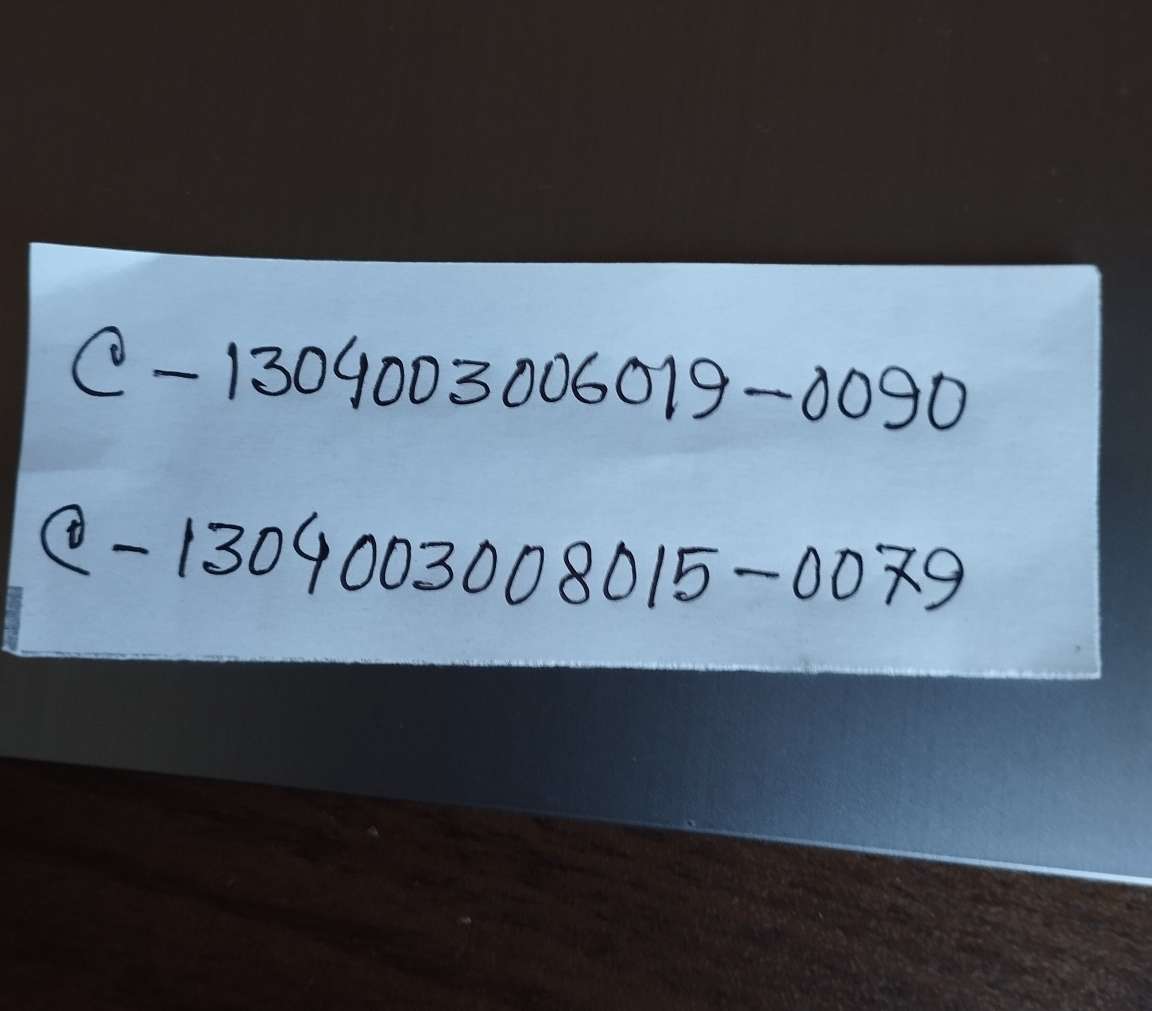 C-1304003006019-0090
C-1304003008015-0079